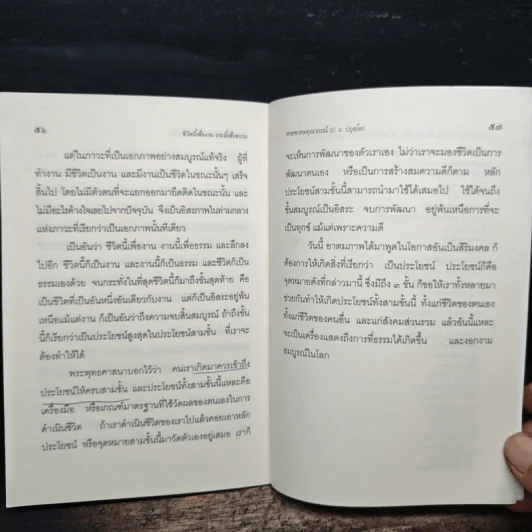 ๕๖
ชีวิตนี้เพื่องาน งานนี้เพื่อธรรม
แต่ในภาวะที่เป็นเอกภาพอย่างสมบูรณ์แท้จริง ผู้ที่
ทำงาน มีชีวิตเป็นงาน และมีงานเป็นชีวิตในขณะนั้นๆ เสร็จ
สิ้นไป โดยไม่มีตัวตนที่จะแยกออกมายึดติดในขณะนั้น และ
ไม่มีอะไรค้างใจเลยไปจากปัจจุบัน จึงเป็นอิสรภาพในท่ามกลาง
แห่งภาวะที่เรียกว่าเป็นเอกภาพนั้นทีเดียว
เป็นอันว่า ชีวิตนี้เพื่องาน งานนี้เพื่อธรรม และลึกลง
ไปอีก ชีวิตก็เป็นงาน และงานนี้ก็เป็นธรรม และชีวิตก็เป็น
ธรรมเองด้วย จนกระทั่งในที่สุดชีวิตนี้ก็มาถึงขั้นสุดท้าย คือ
เป็นชีวิตที่เป็นอันหนึ่งอันเดียวกับงาน แต่ก็เป็นอิสระอยู่พ้น
เหนือแม้แต่งาน ก็เป็นอันว่าถึงความจบสิ้นสมบูรณ์ ถ้าถึงขั้น
นี้ก็เรียกว่าเป็นประโยชน์สูงสุดในประโยชน์สามขั้น ที่เราจะ
ต้องทำให้ได้
พระพุทธศาสนาบอกไว้ว่า คนเราเกิดมาควรเข้าถึง
ประโยชน์ให้ครบสามขั้น และประโยชน์ทั้งสามขั้นนี้แหละคือ
เครื่องมือ หรือเกณฑ์มาตรฐานที่ใช้วัดผลของตนเองในการ
ดำเนินชีวิต ถ้าเราดำเนินชีวิตของเราไปแล้วคอยเอาหลัก
ประโยชน์ หรือจุดหมายสามขั้นนี้มาวัดตัวเองอยู่เสมอ เราก็
พระพรหมคุณาภรณ์ (ป. อ. ปยุตฺโต)
๕๗
จะเห็นการพัฒนาของตัวเราเอง ไม่ว่าเราจะมองชีวิตเป็นการ
พัฒนาตนเอง หรือเป็นการสร้างสมความดีก็ตาม หลัก
ประโยชน์สามขั้นนี้สามารถนำมาใช้ได้เสมอไป ใช้ได้จนถึง
ขั้นสมบูรณ์เป็นอิสระ จบการพัฒนา อยู่พ้นเหนือการที่จะ
เป็นทุกข์ แม้แต่เพราะความดี
วันนี้ อาตมภาพได้มาพูดในโอกาสอันเป็นสิริมงคล ก็
ต้องการให้เกิดสิ่งที่เรียกว่า เป็นประโยชน์ ประโยชน์ก็คือ
จุดหมายดังที่กล่าวมานี้ ซึ่งมีถึง ๓ ขั้น ก็ขอให้เราทั้งหลายมา
ช่วยกันทำให้เกิดประโยชน์ทั้งสามขั้นนี้ ทั้งแก่ชีวิตของตนเอง
ทั้งแก่ชีวิตของคนอื่น และแก่สังคมส่วนรวม แล้วอันนี้แหละ
จะเป็นเครื่องแสดงถึงการที่ธรรมได้เกิดขึ้น และงอกงาม
สมบูรณ์ในโลก